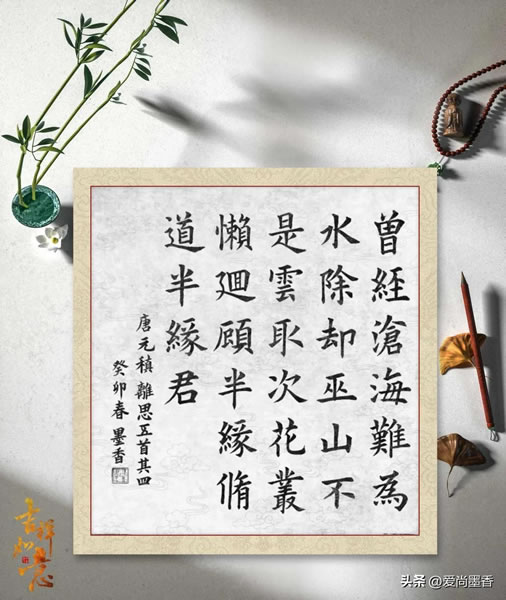 曾經滄海難為
水除却巫山不
是雲取次花叢
懶迴顧半緣脩
道半緣君
唐元稹離思五首其四
癸卯春墨香
吉祥如意
头条@爱尚墨香